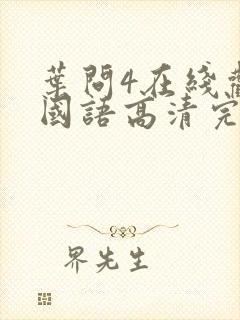 葉問4在綫
國語高清完
界先生